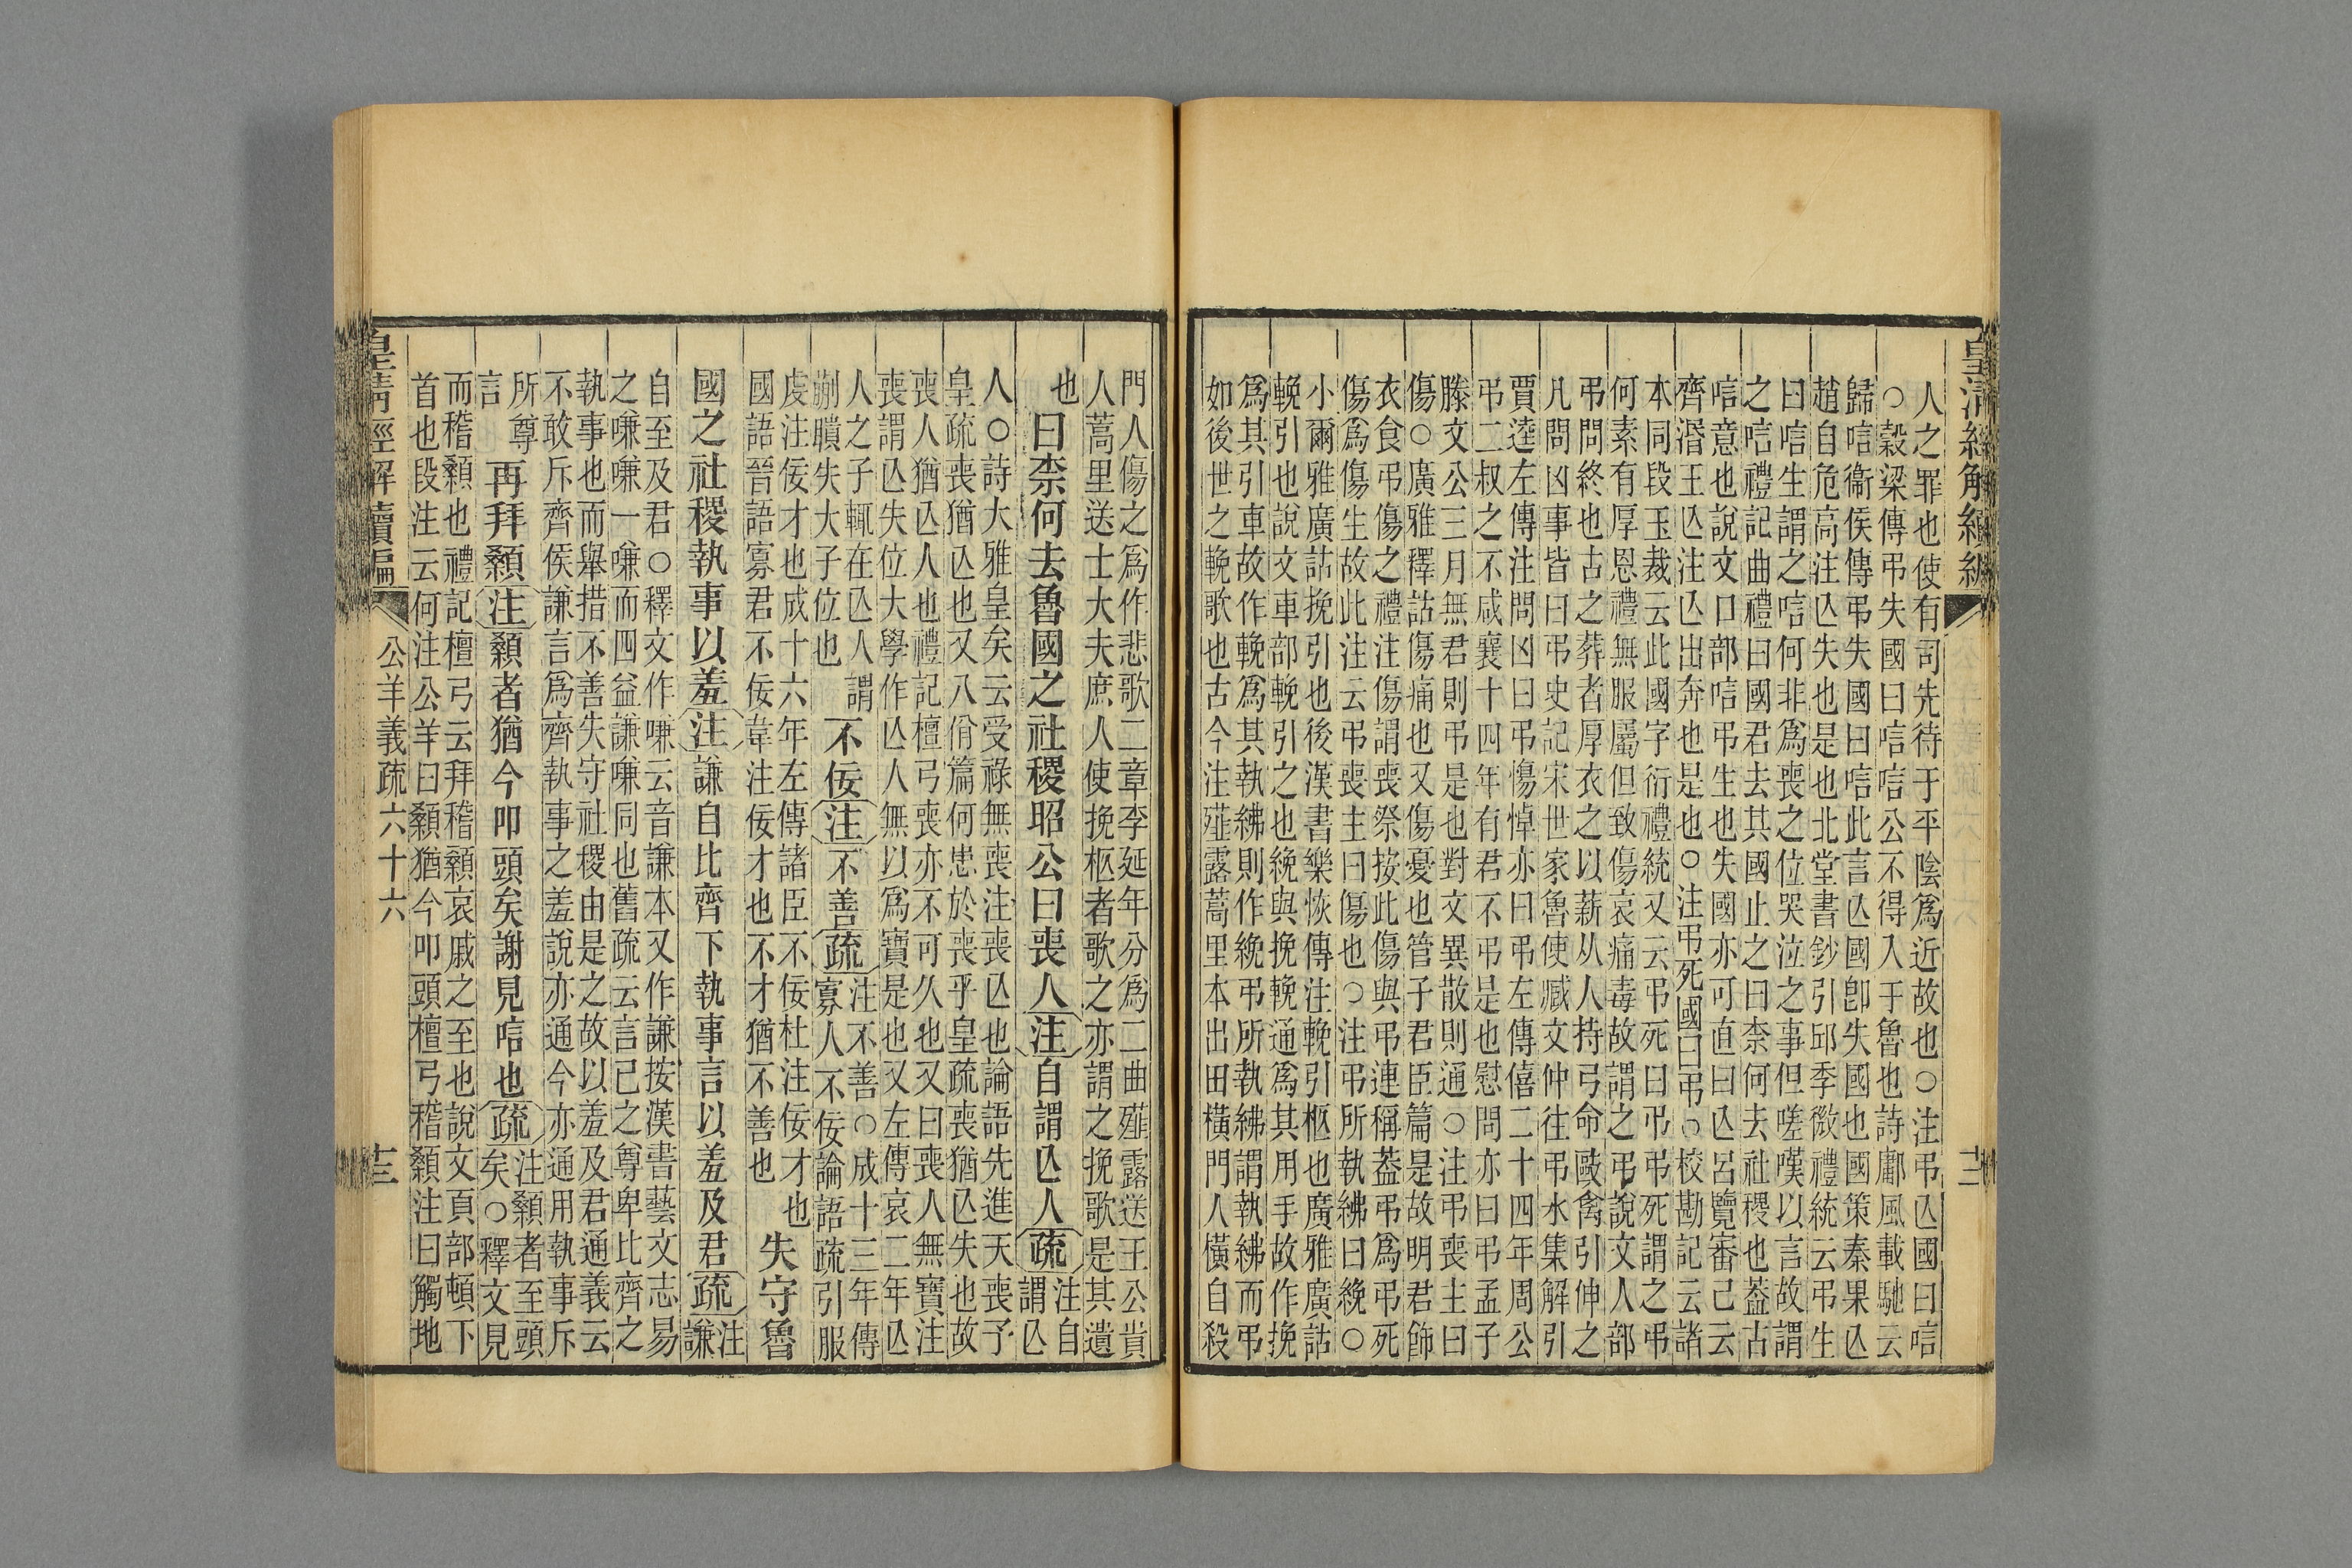 皇清經解續編
人之罪也使有司先待于平陰爲近故也○注弔亾國曰唁
○穀梁傳弔失國曰唁唁公不得入于魯也詩鄘風載馳云
歸唁衞侯傳弔失國曰唁此言亾國卽失國也國策秦果亾
趙自危高注亾失也是也北堂書鈔引邱季徴禮統云弔生
曰唁生謂之唁何非爲喪之位哭泣之事但嗟嘆以言故謂
之唁禮記曲禮曰國君去其國止之曰柰何去社稷也葢古
唁意也說文口部唁弔生也失國亦可直曰亾呂覽審己云
齊湣王亾注亾出奔也是也○注弔死國曰弔○校勘記云諸
本同段玉裁云此國字衍禮統又云弔死曰弔弔死謂之弔
何素有厚恩禮無服屬但致傷哀痛毒故謂之弔說文人部
弔問終也古之葬者厚衣之以薪从人持弓命敺禽引伸之
凡問凶事皆曰弔史記宋世家魯使臧文仲往弔水集解引
賈逵左傳注問凶曰弔傷悼亦曰弔左傳僖二十四年周公
弔二叔之不咸襄十四年有君不弔是也慰問亦曰弔孟子
滕文公三月無君則弔是也對文異散則通○注弔喪主曰
傷○廣雅釋詁傷痛也又傷憂也管子君臣篇是故明君飾
衣食弔傷之禮注傷謂喪祭按此傷與弔連稱葢弔爲弔死
傷爲傷生故此注云弔喪主曰傷也○注弔所執紼曰綩○
小爾雅廣詁挽引也後漢書樂恢傳注輓引柩也廣雅廣詁
輓引也說文車部輓引之也綩與挽輓通爲其用手故作挽
爲其引車故作輓爲其執紼則作綩弔所執紼謂執紼而弔
如後世之輓歌也古今注薤露蒿里本出田橫門人橫自殺
門人傷之爲作悲歌二章李延年分爲二曲薤露送王公貴
人蒿里送士大夫庶人使挽柩者歌之亦謂之挽歌是其遺
也曰柰何去魯國之社稷昭公曰喪人注自謂亾人疏注自謂亾
人○詩大雅皇矣云受祿無喪注喪亾也論語先進天喪予
皇疏喪猶亾也又八佾篇何患於喪乎皇疏喪猶亾失也故
喪人猶亾人也禮記檀弓喪亦不可久也又曰喪人無寶注
喪謂亾失位大學作亾人無以爲寶是也又左傳哀二年亾
人之子輒在亾人謂
蒯聵失大子位也不佞注不善疏注不善○成十三年傳
寡人不佞論語疏引服
虔注佞才也成十六年左傳諸臣不佞杜注佞才也
國語晉語寡君不佞韋注佞才也不才猶不善也失守魯
國之社稷執事以羞注謙自比齊下執事言以羞及君疏注謙
自至及君○釋文作嗛云音謙本又作謙按漢書藝文志易
之嗛嗛一嗛而四益謙嗛同也舊疏云言己之尊卑比齊之
執事也而舉措不善失守社稷由是之故以羞及君通義云
不敢斥齊侯謙言爲齊執事之羞說亦通今亦通用執事斥
所尊
言再拜顙注顙者猶今叩頭矣謝見唁也疏注顙者至頭
矣○釋文見
而稽顙也禮記檀弓云拜稽顙哀戚之至也說文頁部頓下
首也段注云何注公羊曰顙猶今叩頭檀弓稽顙注曰觸地
皇清經解續編
公羊義疏六十六
十三